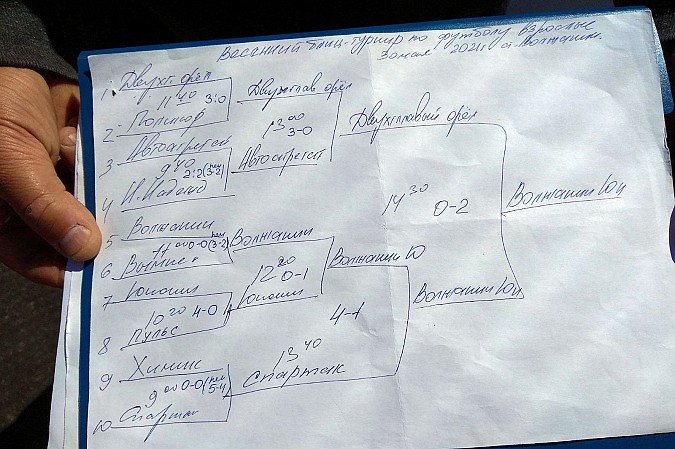 Весенний блиц-турнир по футболу взрослые
3 мая 2021г Волжанин.
1. Двухг. орёл
11 40 3:0
2 Полимер
3 Автоагрегат
9 40 2:2 (пен 3-2)
4
5 Волжанин
11 00 0-0 (пен 3-2)
6
7 Юноши
10 20 4-0
8 Пульс
9 Химик
9 00 0-0 (пен 5-4)
10 Спартак
Двухглав орёл
13 00
3-0
Автоагрегат
Волжанин
12 20
0-1
Юноши
13 40
Спартак
Двухглавый орёл
14 30 0-2
Волжанин Ю
4-1
Волжанин Юн
Волжанин Юн